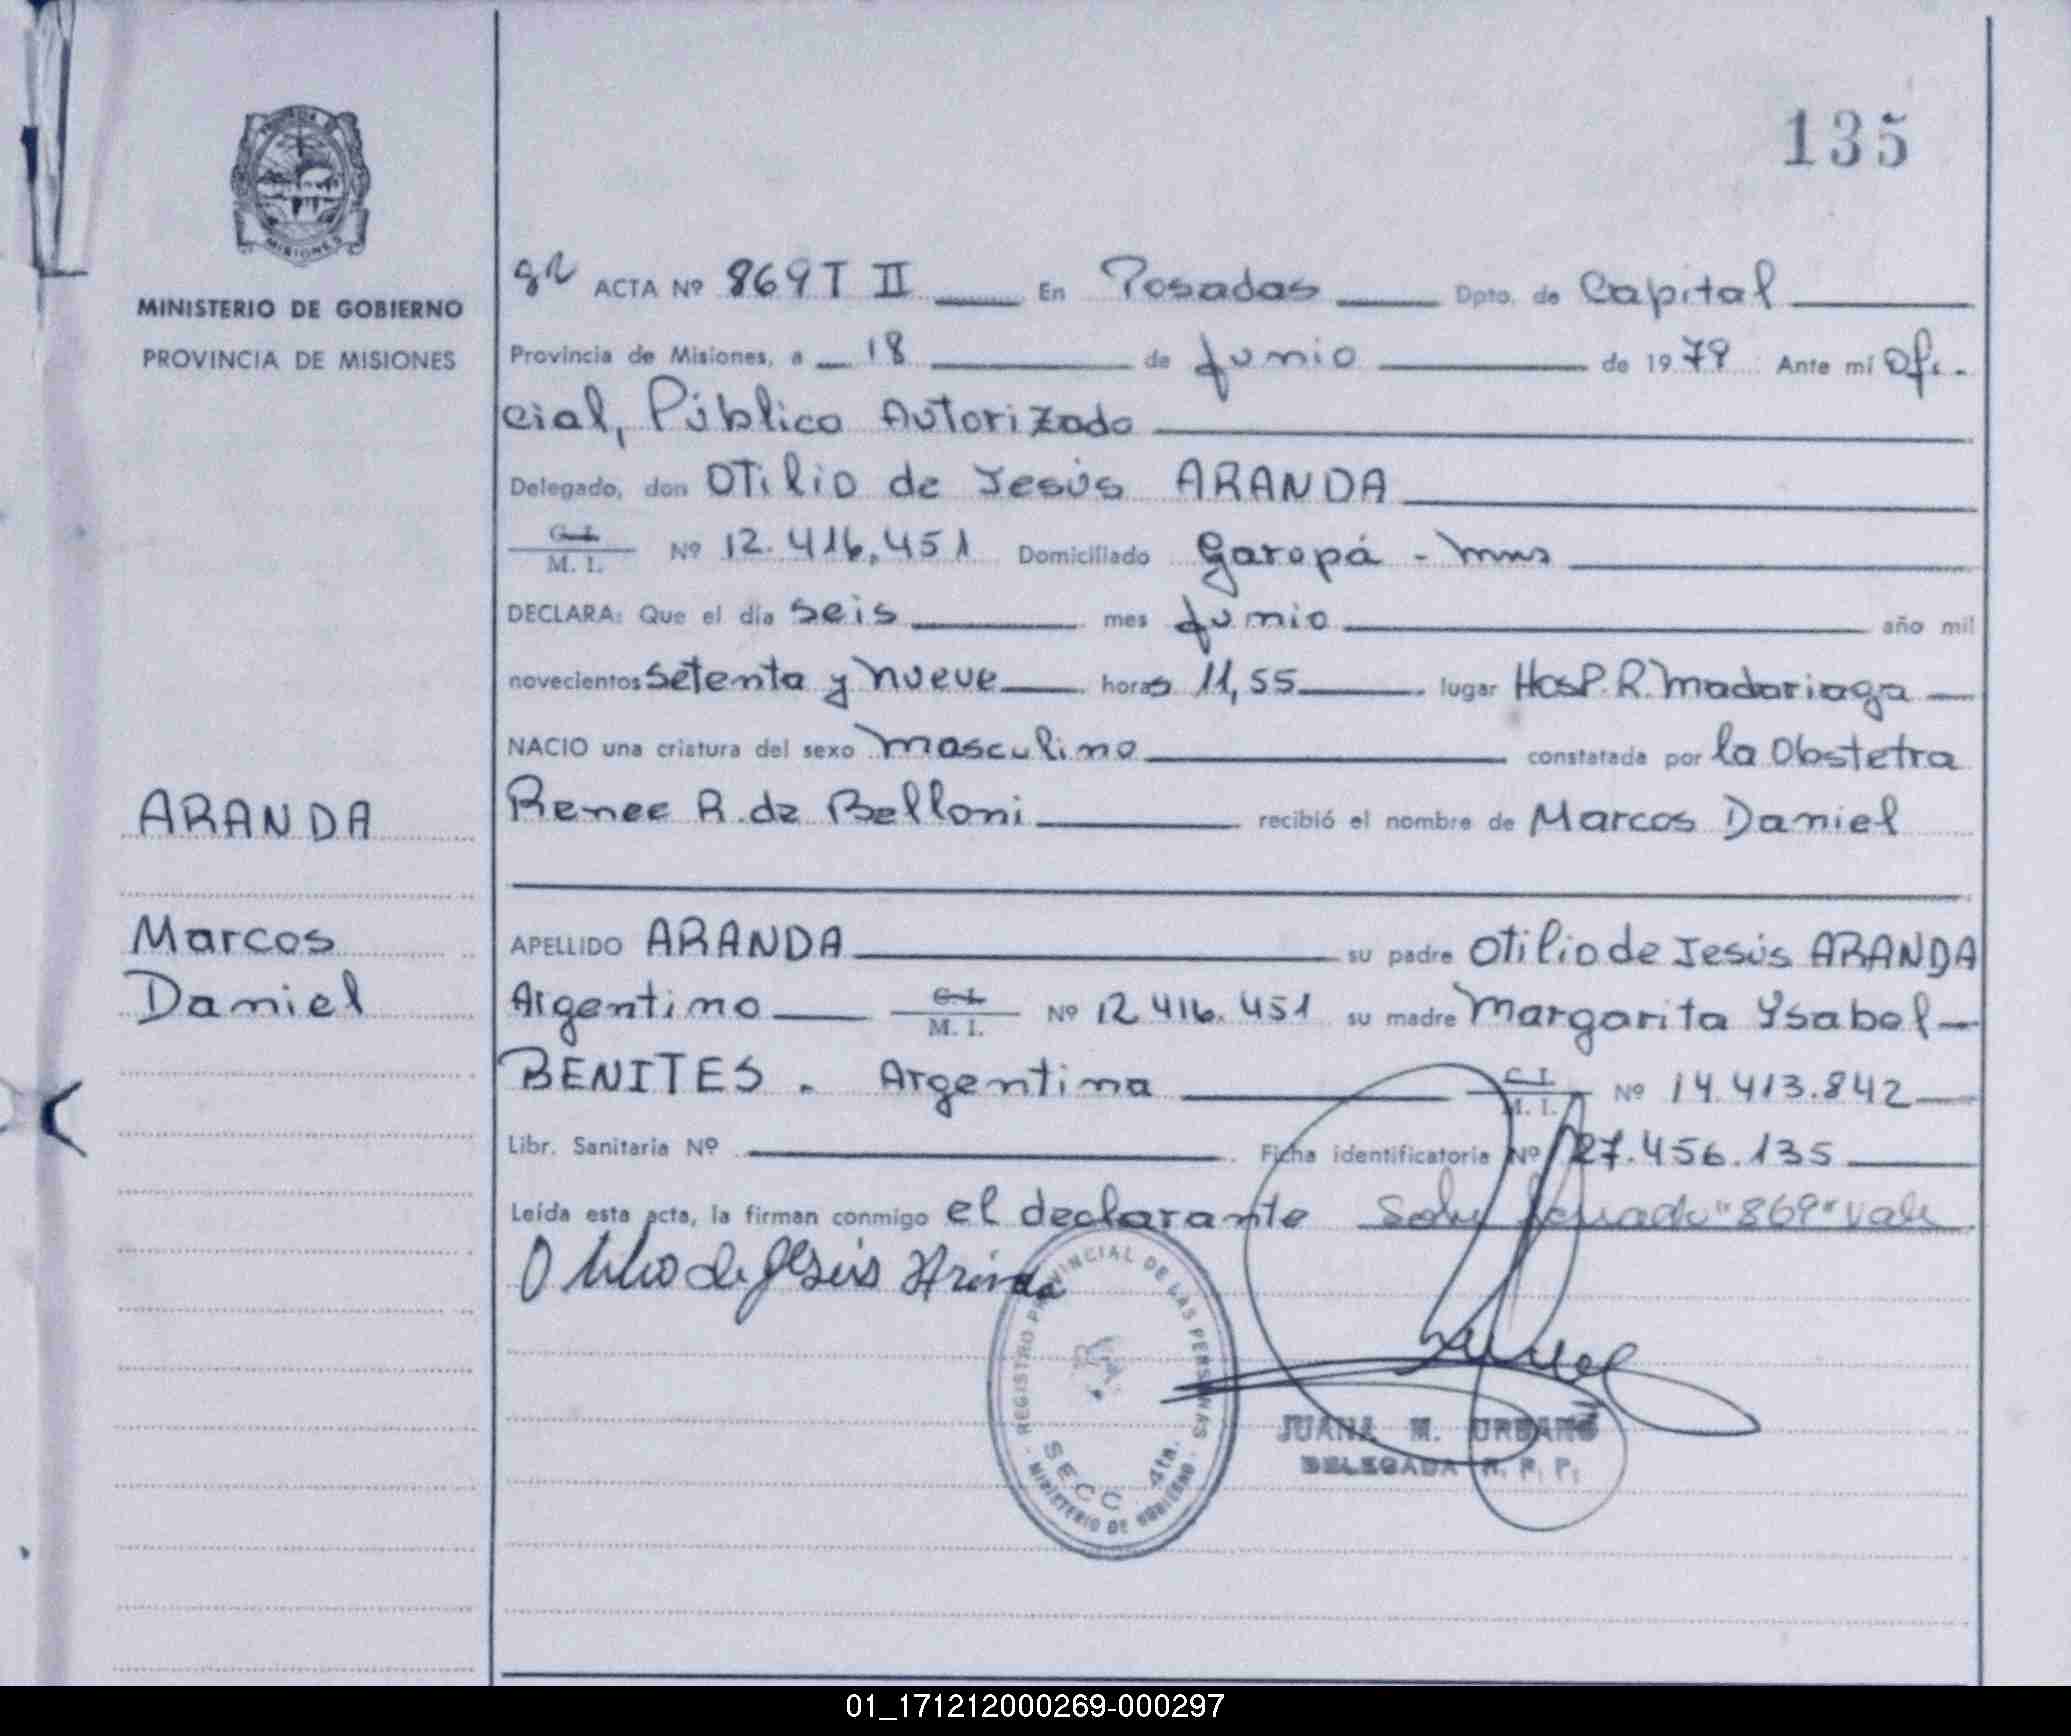 135
MINISTERIO DE GOBIERNO
PROVINCIA DE MISIONES
ARANDA
Marcos
Daniel
ACTA Nº 869 T II En Posadas Dpto. de Capital
Provincia de Misiones, a 18 de Junio de 1979 Ante mí Ofi-
cial, Público Autorizado
Delegado, don Otilio de Jesús ARANDA
C. I.
M. I. Nº 12.416.451 Domiciliado Garupá - Mnes
DECLARA: Que el día seis mes Junio año mil
novecientos setenta y nueve horas 11,55 lugar Hosp. R. Madariaga
NACIO una criatura del sexo masculino constatada por la Obstetra
Renee R. de Belloni recibió el nombre de Marcos Daniel
APELLIDO ARANDA su padre Otilio de Jesús ARANDA
Argentino C. I.
M. I. Nº 12.416.451 su madre Margarita Ysabel
BENITES. Argentina C. I.
M. I. Nº 14.413.842
Libr. Sanitaria Nº Ficha identificatoria Nº 27.456.135
Leída esta acta, la firman conmigo el declarante Sobre "869" vale
Otilio de Jesús Aranda
REGISTRO PROVINCIAL DE LAS PERSONAS
SECC. 4ta.
MINISTERIO DE GOBIERNO
JUANA M. URBANO
DELEGADA R. P. P.
MISIONES
01_171212000269-000297